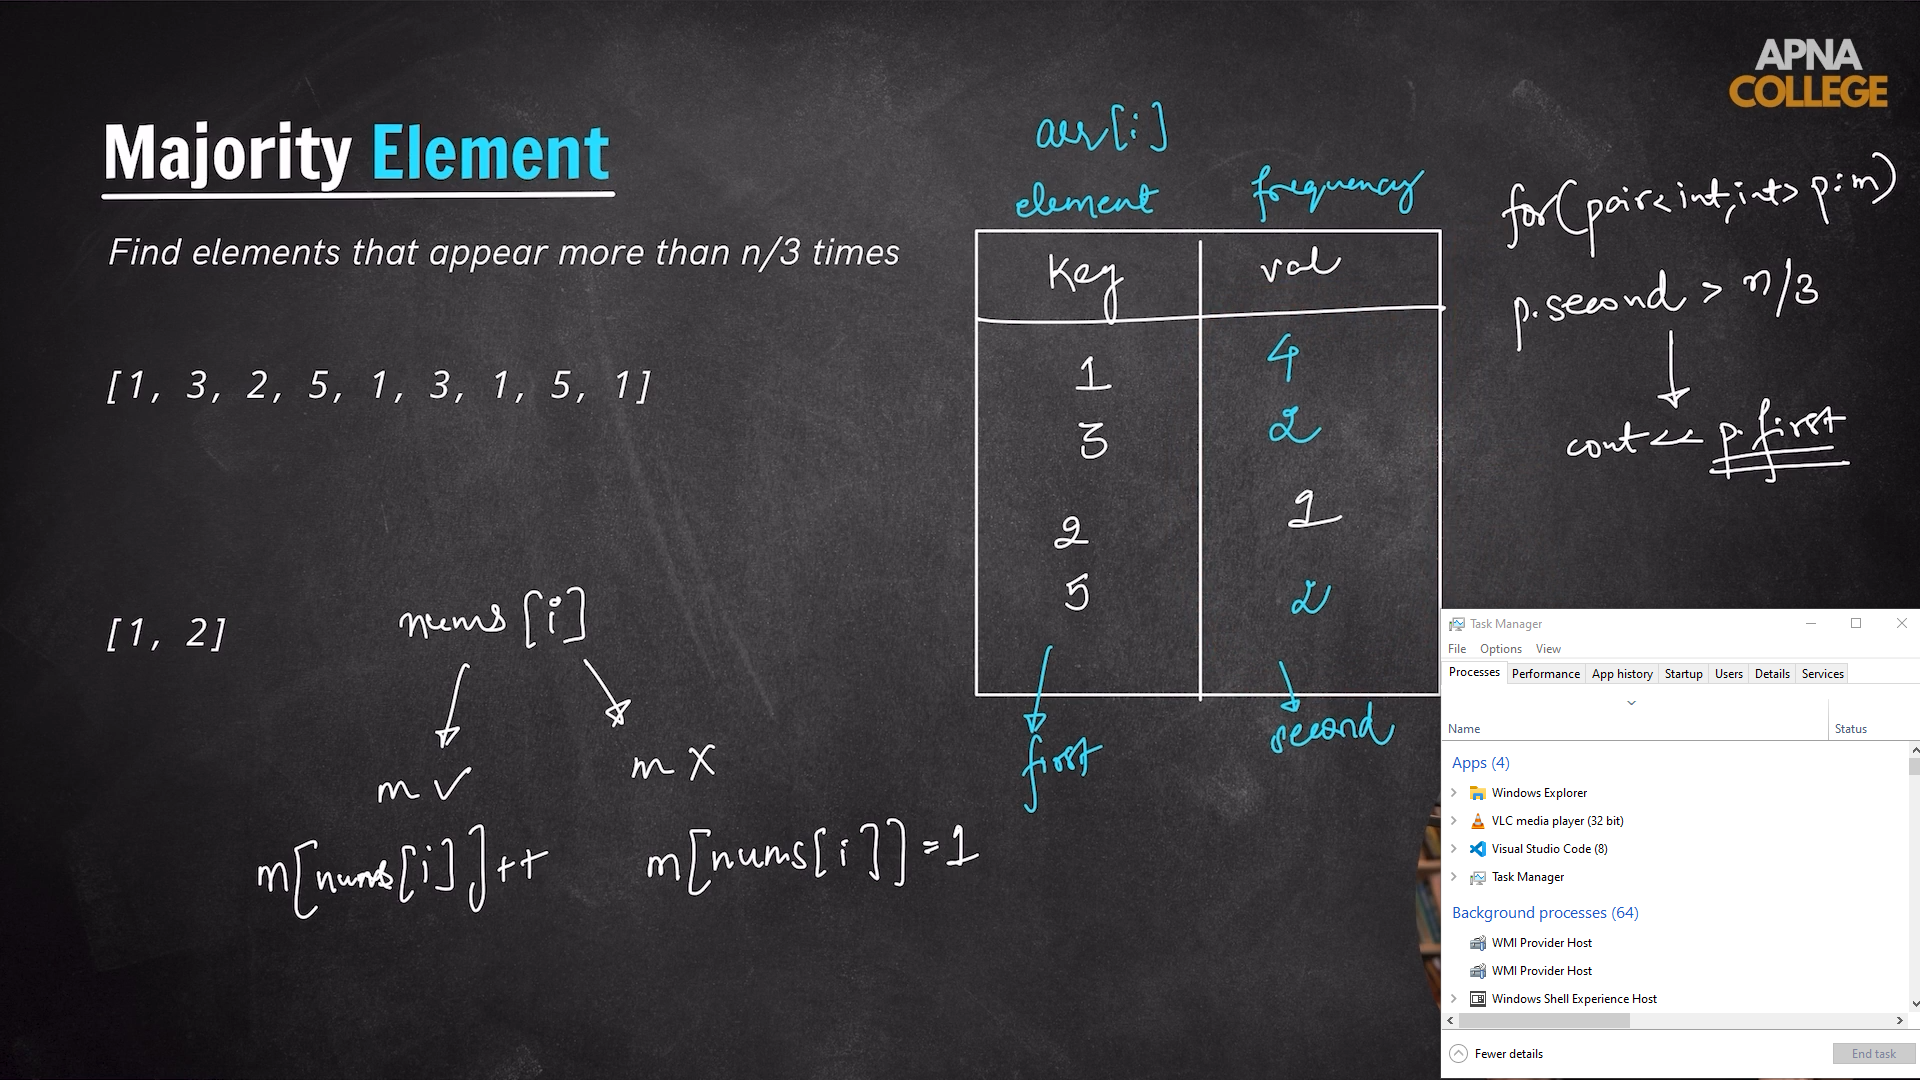 APNA
COLLEGE
Majority Element
Find elements that appear more than n/3 times
[1, 3, 2, 5, 1, 3, 1, 5, 1]
[1, 2]
nums[i]
m ✓
m X
m[nums[i]]++
m[nums[i]] = 1
arr[i]
element frequency
Key val
1 4
3 2
2 1
5 2
first second
for(pair<int,int> p:m)
p.second > n/3
cout<< p.first
Task Manager
File Options View
Processes Performance App history Startup Users Details Services
Name Status
Apps (4)
Windows Explorer
VLC media player (32 bit)
Visual Studio Code (8)
Task Manager
Background processes (64)
WMI Provider Host
WMI Provider Host
Windows Shell Experience Host
Fewer details
End task